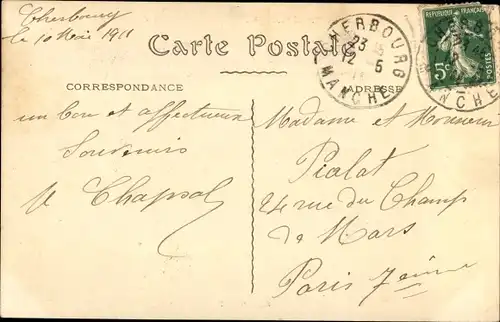 Cherbourg
le 10 Mai 1911
Carte Postale
CHERBOURG
23
12 5
MANCHE
REPUBLIQUE FRANÇAISE
5c
POSTES
MANCHE
CORRESPONDANCE
ADRESSE
un bon et affectueux
Souvenirs
Chapsal
Madame et Monsieur
Pialat
24 rue du Champ
de Mars
Paris 7eime